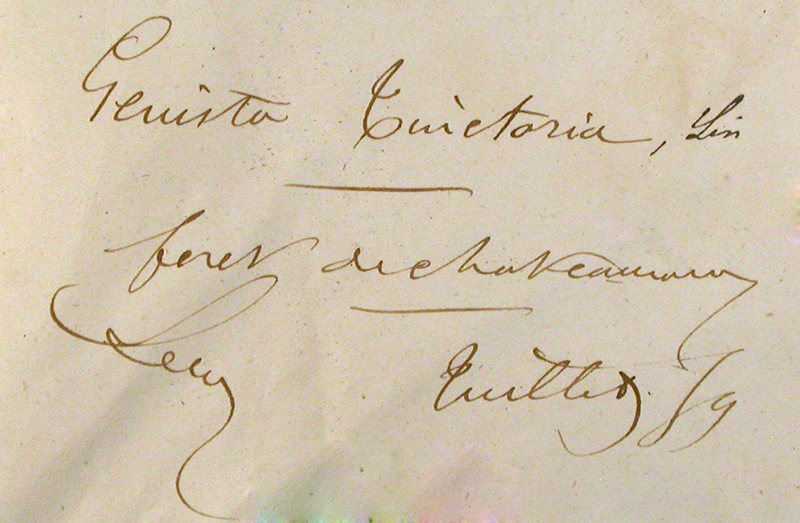 Genista Tinctoria, Lin
foret de chateauroux
Juillet 89